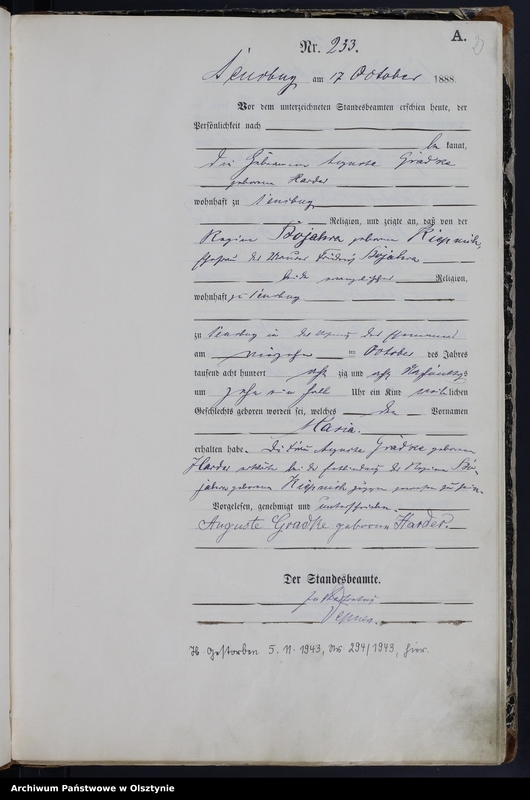 A.
Nr. 233.
am 17 October 1888.
Vor dem unterzeichneten Standesbeamten erschien heute, der
Persönlichkeit nach
be kannt,
die Hebamme Auguste Gradke
geborene Harder
wohnhaft zu
Religion, und zeigte an, daß von der
Regine Bojahra geborene
Ehefrau des Maurer Friedrich Bojahra
beide evangelischer Religion,
wohnhaft zu
zu in der Wohnung des Ehemannes
am October des Jahres
tausend acht hundert acht zig und acht Nachmittags
um zehn ein halb Uhr ein Kind weiblichen
Geschlechts geboren worden sei, welches den Vornamen
Maria.
erhalten habe. Die Frau Auguste Gradke geborene
Harder erklärte bei der Entbindung der Regine Bo-
jahra geborene zugegen gewesen zu sein.
Vorgelesen, genehmigt und unterschrieben.
Auguste Gradke geborene Harder.
Der Standesbeamte.
Gestorben 5. 11. 1943, Nr. 294/1943, hier.
Archiwum Państwowe w Olsztynie